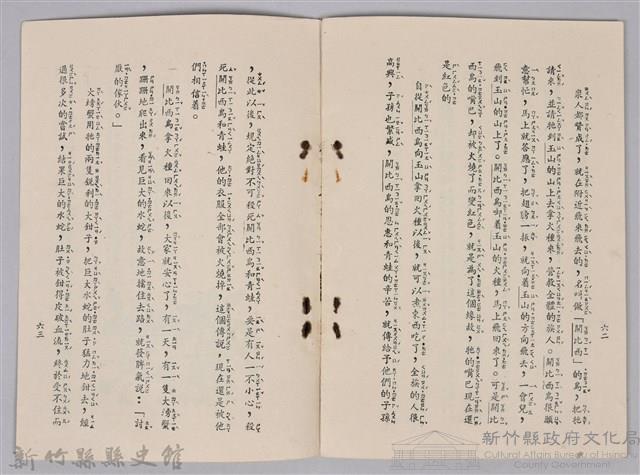 眾人都贊成了，就在附近飛來飛去的，名叫做「開比西」的鳥，把牠
請來，並請牠到玉山的山上去拿火種來，營救全體的族人。開比西鳥很願
意幫忙，馬上就答應了，把翅膀一振，就向着玉山的方向飛去，一會兒，
飛到玉山的山上了。開比西鳥啣着玉山的火種，馬上飛回來了。可是開比
西鳥的嘴巴，却被火燒了而變紅色，就是為了這個緣故，牠的嘴巴現在還
是紅色的
自從開比西鳥向玉山拿回火種以後，就可以煮東西吃了，全族的人很
高興，子孫也繁盛，開比西鳥的恩惠和青蛙的辛苦，就傳給予他們的子孫
六二
，從此以後，規定絕對不可殺死開比西鳥和青蛙，要是有人一不小心，殺
死開比西鳥和青蛙，他的衣服全部會被火燒掉，這個傳說，現在還是被他
們相信着。
開比西鳥拿火種回來以後，大家就安心了，有一天，有一隻大螃蟹
，蹣跚地爬出來，看見巨大的水蛇，故意地擋住去路，就發脾氣說：「討
厭的傢伙。」
火螃蟹用牠的兩隻銳利的大鉗子，把巨大水蛇的肚子猛力地鉗去，經
過很多次的嘗試，結果巨大的水蛇，肚子被鉗得皮破血流，終於受不住而
六三
新竹縣縣史館
新竹縣政府文化局
Cultural Affairs Bureau of Hsinchu County Government